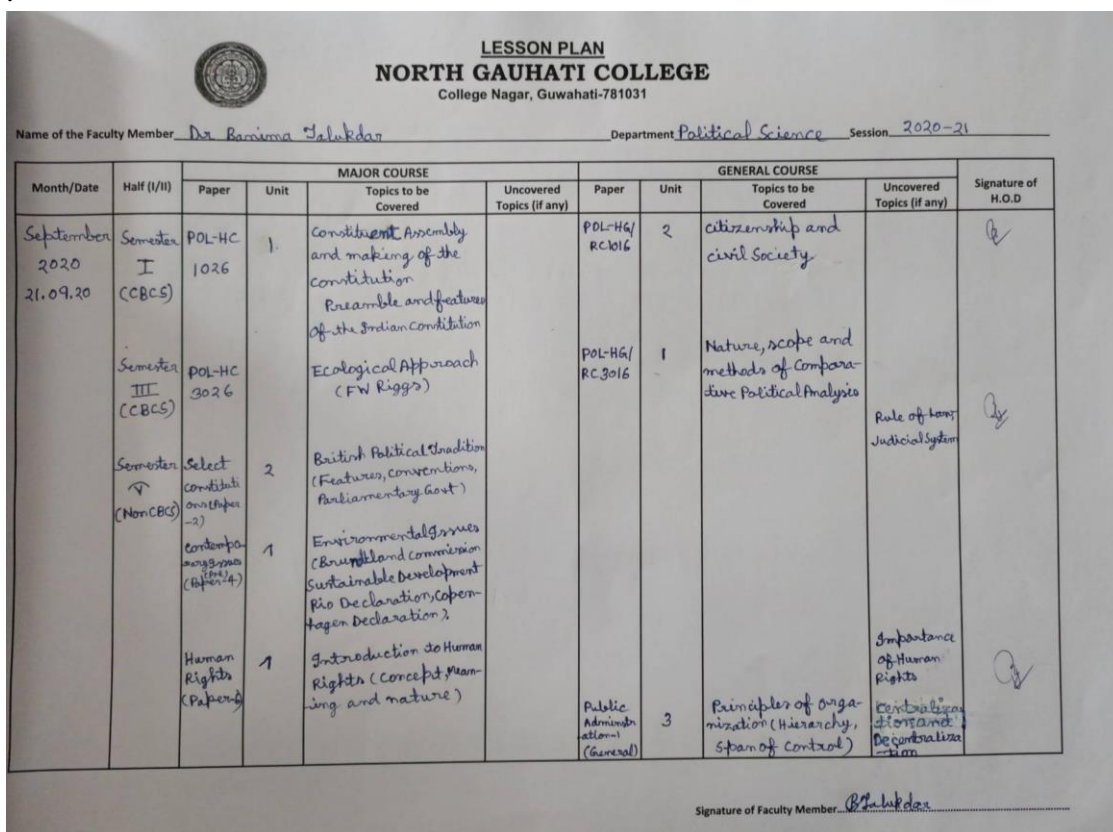 LESSON PLAN
NORTH GAUHATI COLLEGE
College Nagar, Guwahati-781031
Name of the Faculty Member Dr Banima Talukdar Department Political Science Session 2020-21
MAJOR COURSE
GENERAL COURSE
Month/Date
Half (I/II)
Paper
Unit
Topics to be
Covered
Uncovered
Topics (if any)
Paper
Unit
Topics to be
Covered
Uncovered
Topics (if any)
Signature of
H.O.D
September
2020
21.09.20
Semester
I
(CBCS)
POL-HC
1026
1.
Constituent Assembly
and making of the
constitution
Preamble and features
of the Indian Constitution
POL-HG/
RC1016
2
citizenship and
civil Society
Semester
III
(CBCS)
POL-HC
3026
Ecological Approach
(FW Riggs)
POL-HG/
RC3016
1
Nature, scope and
methods of Compara-
tive Political Analysis
Semester
V
(Non CBCS)
Select
constituti
ons (Paper
-2)
2
British Political Tradition
(Features, conventions,
Parliamentary Govt)
Rule of Law,
Judicial System
contempo-
rary Issues
(Paper-4)
1
Environmental Issues
(Brundtland Commission
Sustainable Development
Rio Declaration, Copen-
hagen Declaration)
Human
Rights
(Paper
1
Introduction to Human
Rights (concept, Mean-
ing and nature)
Importance
of Human
Rights
Public
Administr
ation-1
(General)
3
Principles of orga-
nization (Hierarchy,
Span of Control)
Centraliza
tion and
Decentraliza
-tion
Signature of Faculty Member BTalukdar